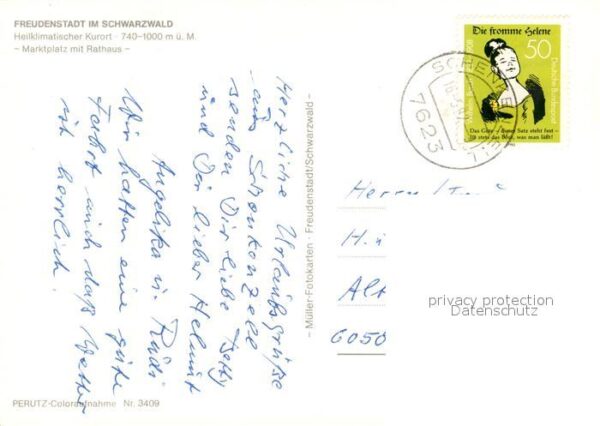 FREUDENSTADT IM SCHWARZWALD
Heilklimatischer Kurort · 740-1000 m ü. M.
- Marktplatz mit Rathaus -
Herzliche Urlaubsgrüße
aus Schenkenzell
senden Dir liebe Betty
und Dir lieber Helmut
Angelika u. Rudi
Wir hatten eine gute
Fahrt auch das Wetter
ist herrlich.
- Müller-Fotokarten · Freudenstadt/Schwarzwald -
PERUTZ-Coloraufnahme Nr. 3409
Die fromme Helene
50
Deutsche Bundespost
Wilhelm Busch 1832-1908
Das Gute – dieser Satz steht fest –
Ist stets das Böse, was man läßt!
SCHENKENZELL
7623
Herrn
Alt
6050
privacy protection
Datenschutz